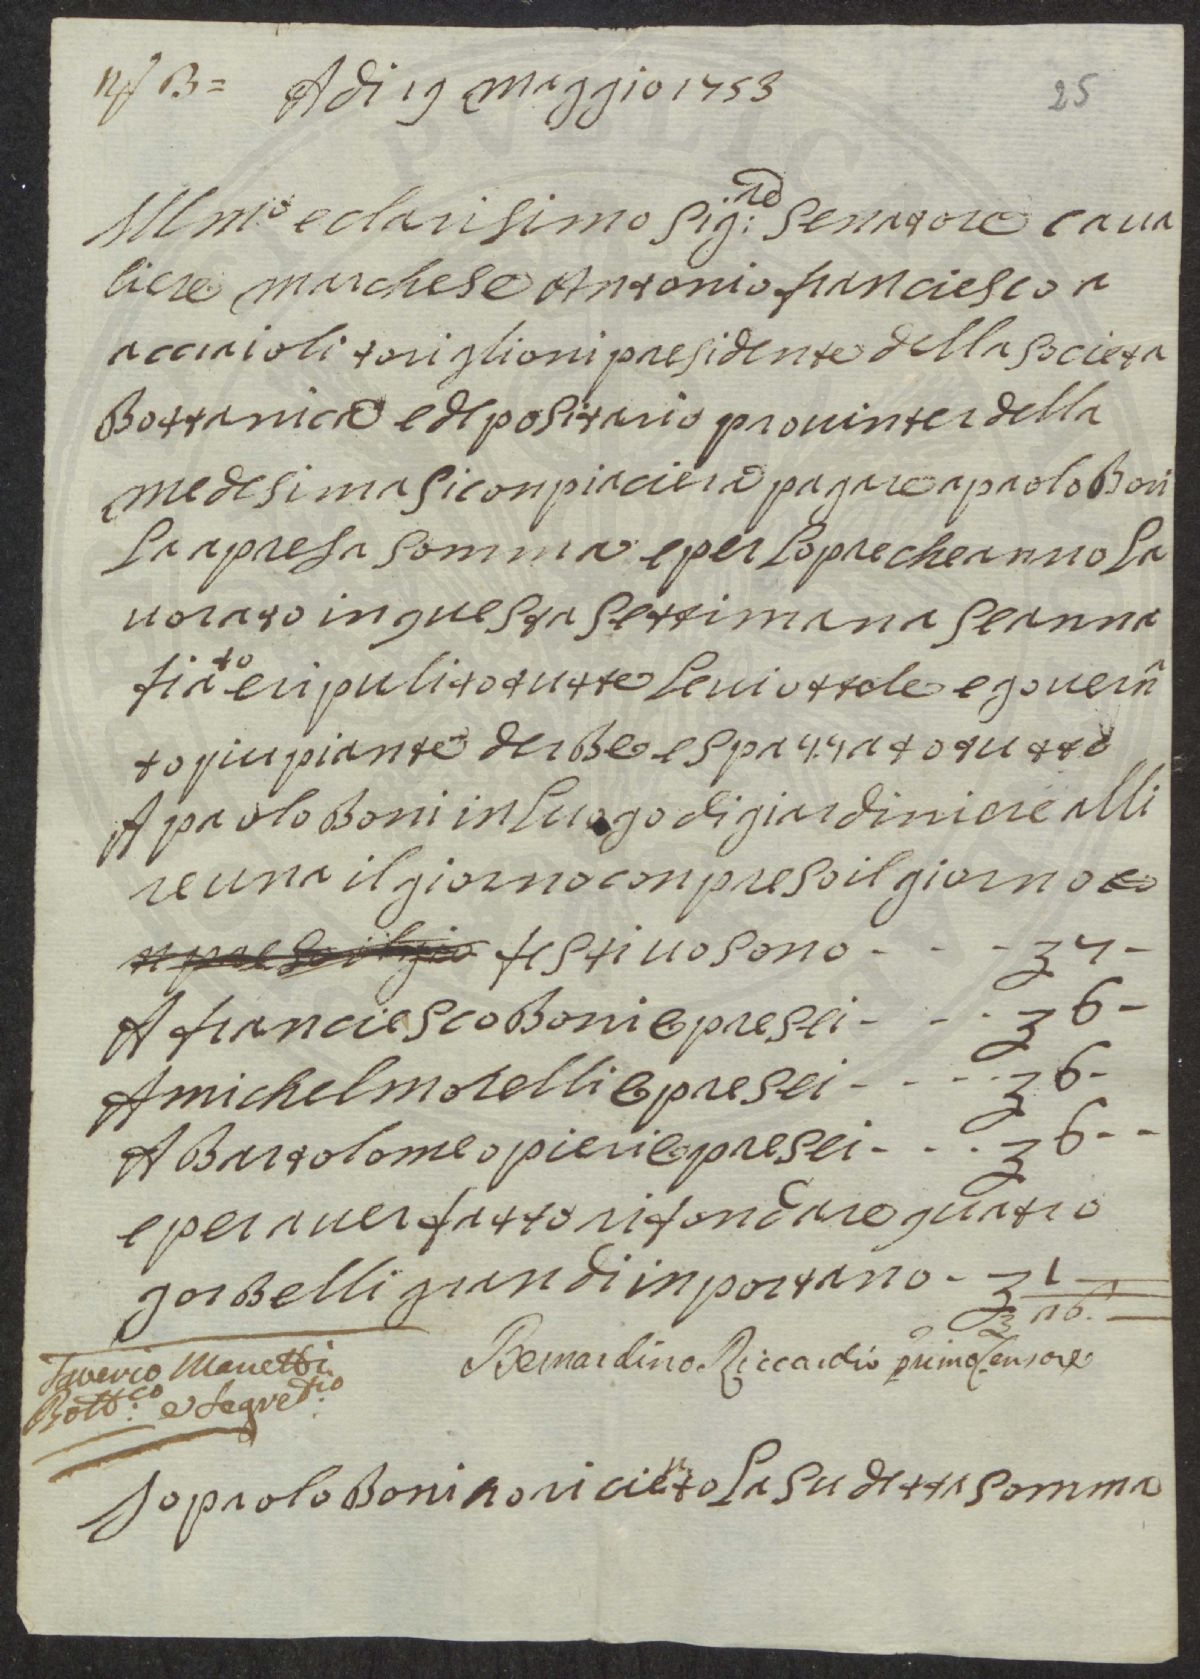 N B = Adi 19 Maggio 1753
25
Ill.mo e clarisimo Sig:re Senatore caua
liere marchese Antonio franciesco a
acciaioli toriglioni presidente della Societa
Bottanica e depositario prouinter della
medesima si conpiaciera pagare a paolo Boni
La apresa somma e per Lopre che anno La
uorato in questa settimana se anna
fiato e ripulito tutte Le uiottole e gouerna
to piu piante derBe e spazzato tutto
A paolo Boni in Luogo di giardiniere alli
re una il giorno conpreso il giorno co
npreso il gio festiuo sono - - - 7 -
A franciesco Boni opre sei - - - 6 -
A michel morelli opre sei - - - - 6 -
A Bartolomeo pieri opre sei - - - 6 - -
e per auer fatto rifondare quatro
gorBelli grandi inportano - 1
Bernardino Riccardi primo Censore
Saverio Manetti
Bott:co e Segret:rio
Io paolo Boni o riceuto La su detta somma